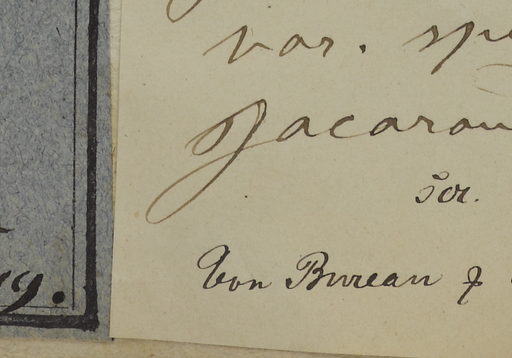 var. spe
Jacaran
scr.
Von Bureau f
19.